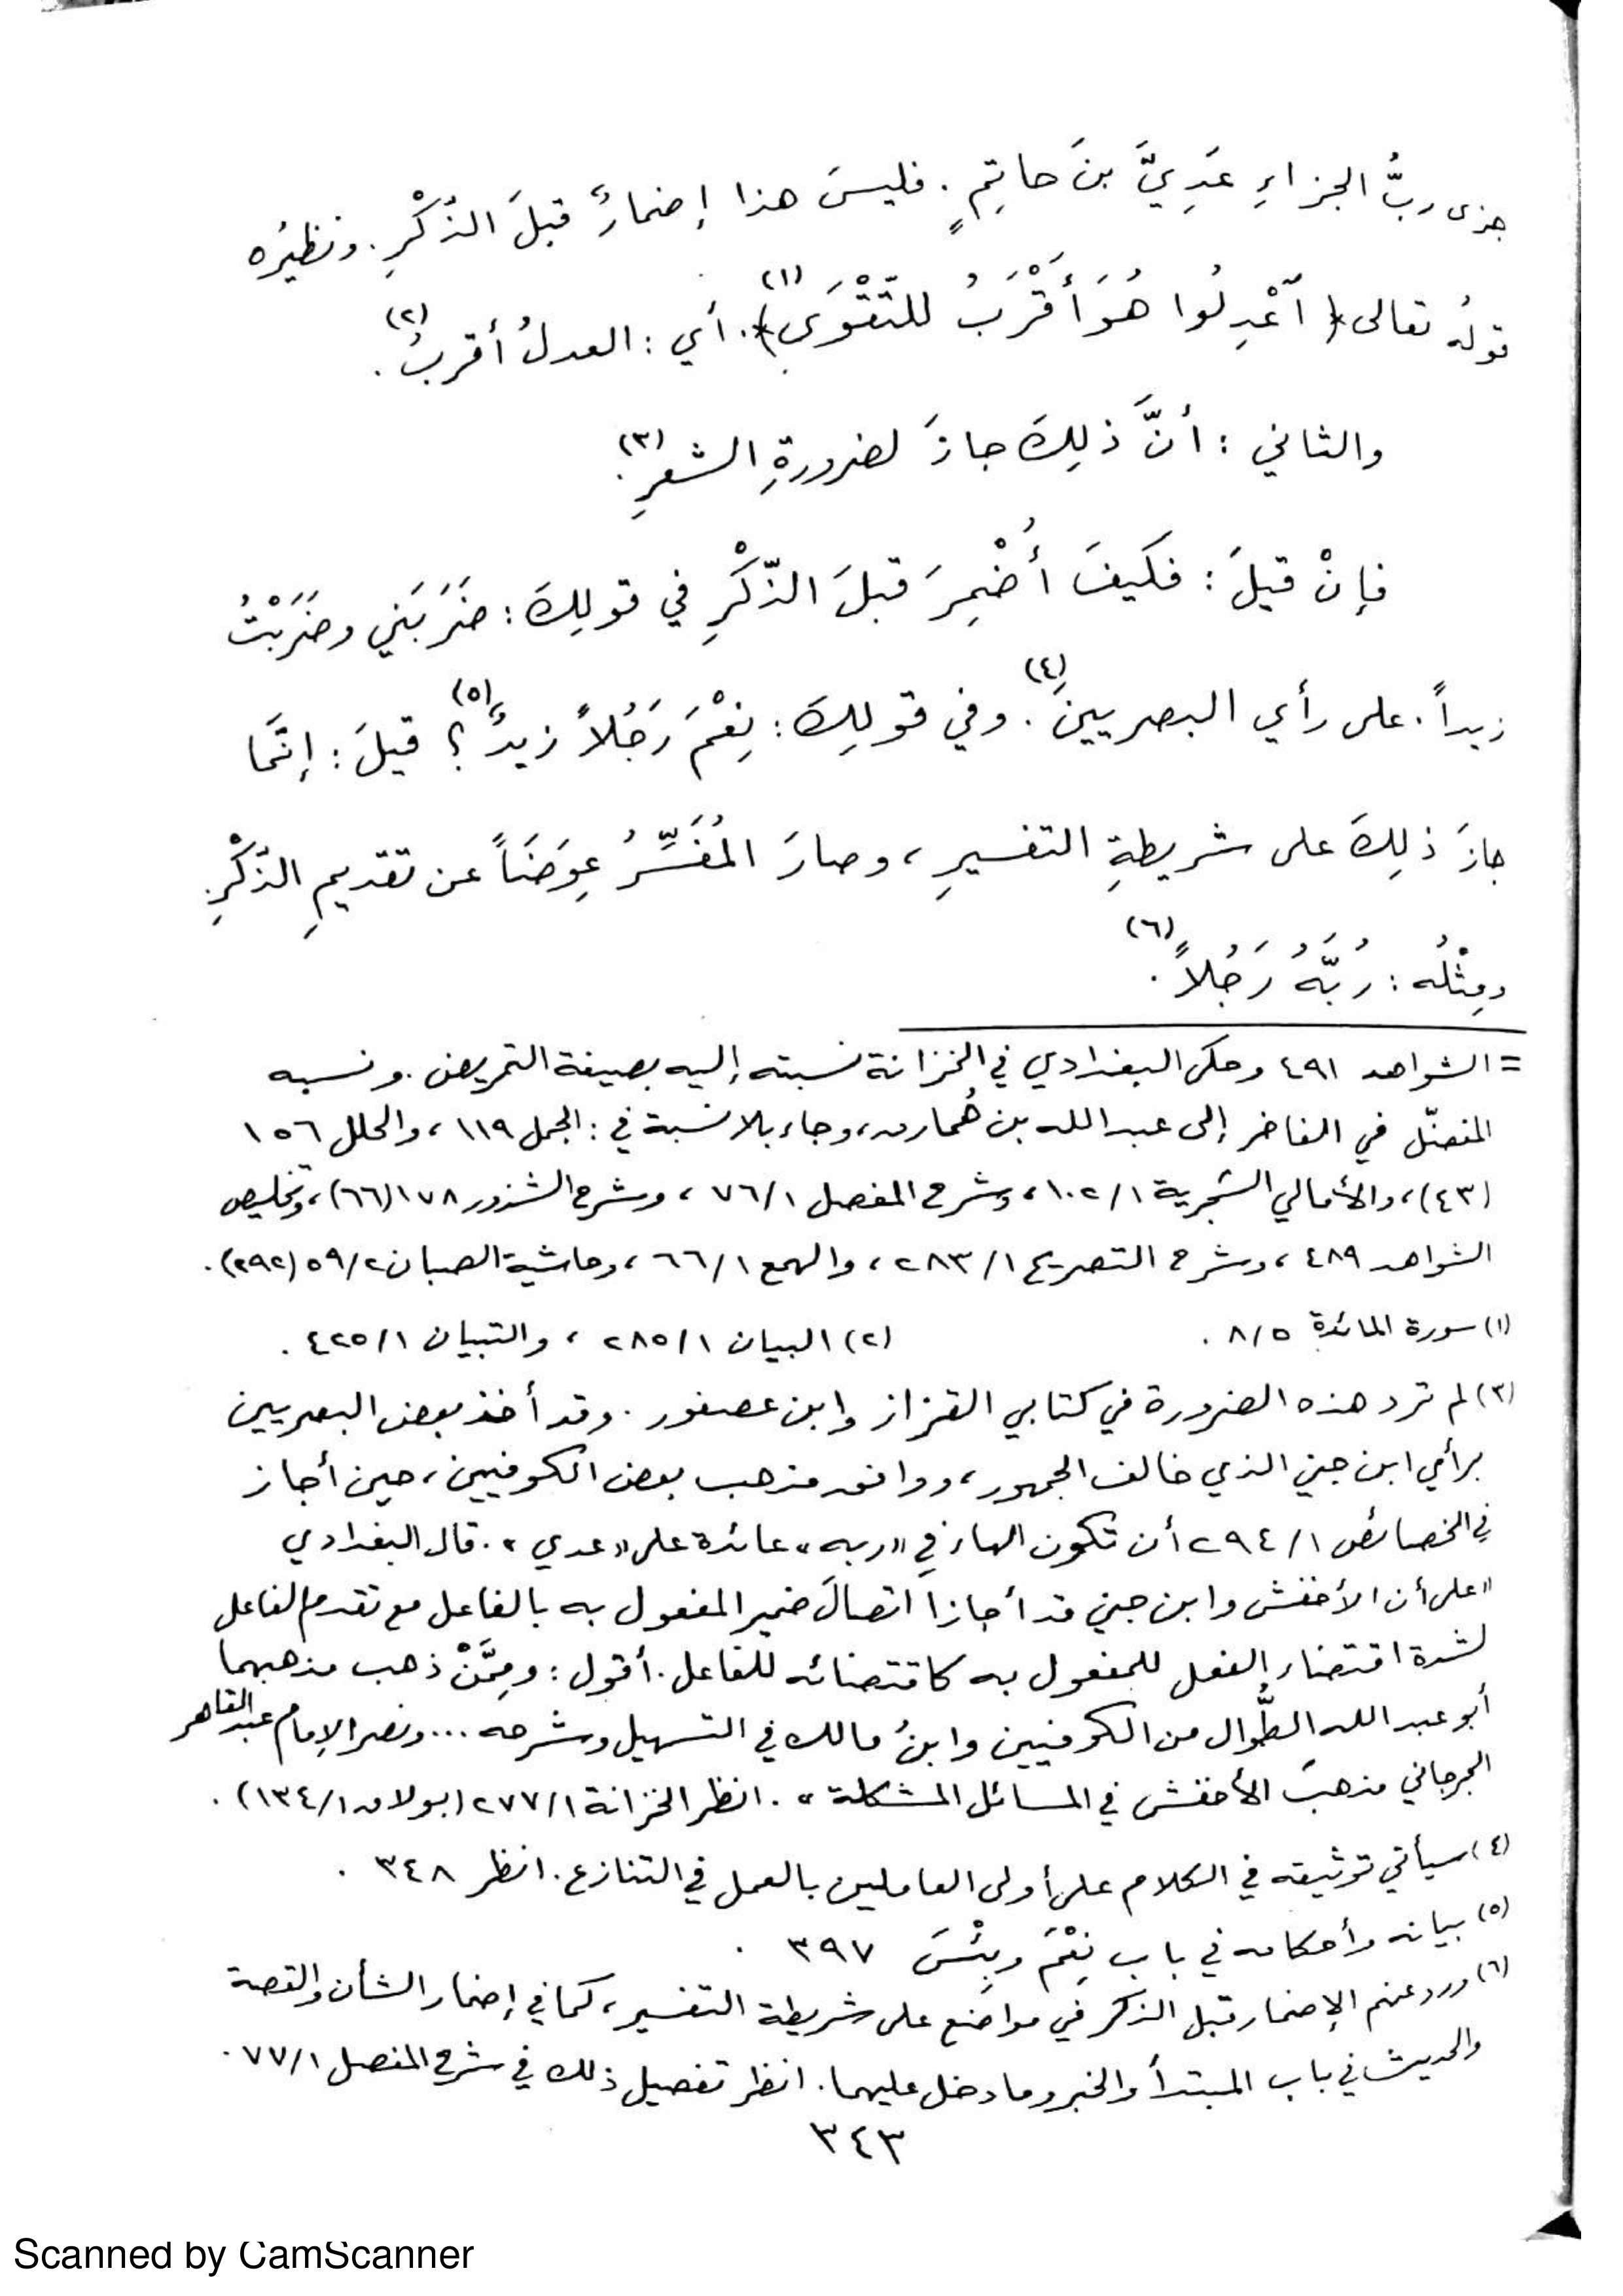 جزى ربُّ الجزاءِ عَدِيَّ بنَ حاتِمٍ. فليسَ هذا إضمارٌ قبلَ الذِّكْرِ. ونظيرُه
قولُه تعالى ﴿ ٱعْدِلُوا هُوَ أَقْرَبُ للتَّقْوَى﴾(١). أي: العدلُ أقربُ(٢).
والثاني: أنَّ ذلِكَ جازَ لضرورةِ الشعرِ(٣).
فإنْ قيلَ: فكيفَ أُضْمِرَ قبلَ الذِّكْرِ في قولِكَ: ضَرَبَني وضَرَبْتُ
زيداً. على رأي البصريينَ(٤). وفي قولِكَ: نِعْمَ رَجُلاً زيدٌ(٥)؟ قيلَ: إنَّما
جازَ ذلِكَ على شريطةِ التفسيرِ، وصارَ المُفَسِّرُ عِوَضَاً عن تقديمِ الذِّكْرِ.
ومِثْلُه: رُبَّهُ رَجُلاً(٦).
= الشواهد ٤٩١ وحكى البغدادي في الخزانة نسبته إليه بصيغة التمريض. ونسبه
المفضّل في الفاخر إلى عبد الله بن هُمارق، وجاء بلا نسبة في: الجمل ١١٩، والحلل ١٥٦
(٤٣)، والأمالي الشجرية ١٠٢/١، وشرح المفصل ٧٦/١، وشرح الشذور ١٧٨ (٦٦)، وتخليص
الشواهد ٤٨٩، وشرح التصريح ٢٨٣/١، والهمع ٦٦/١، وحاشية الصبان ٥٩/٢ (٢٩٢).
(١) سورة المائدة ٨/٥.
(٢) البيان ٢٨٥/١، والتبيان ٤٢٥/١.
(٣) لم ترد هذه الضرورة في كتابي القزاز وابن عصفور. وقد أخذ بعض البصريين
برأي ابن جني الذي خالف الجمهور، ووافق مذهب بعض الكوفيين، حين أجاز
في الخصائص ٢٩٤/١ أن تكون الهاء في «ربه» عائدة على «عدي». قال البغدادي
«على أن الأخفش وابن جني قد أجازا اتصالَ ضمير المفعول به بالفاعل مع تقدم الفاعل
لشدة اقتضاء الفعل للمفعول به كاقتضائه للفاعل. أقول: ومِمَّنْ ذهب مذهبهما
أبو عبد الله الطُّوال من الكوفيين وابنُ مالك في التسهيل وشرحه ... ونصر الإمام عبد القاهر
الجرجاني مذهبَ الأخفش في المسائل المشكلة». انظر الخزانة ٢٧٧/١ (بولاق ١٣٤/١).
(٤) سيأتي توثيقه في الكلام على أولى العاملين بالعمل في التنازع. انظر ٣٤٨.
(٥) بيانه وأحكامه في باب نِعْمَ وبِئْسَ ٣٩٧.
(٦) ورد عنهم الإضمار قبل الذكر في مواضع على شريطة التفسير، كما في إضمار الشأن والقصة
والحديث في باب المبتدأ والخبر وما دخل عليهما. انظر تفصيل ذلك في شرح المفصل ٧٧/١.
٣٤٣
Scanned by CamScanner